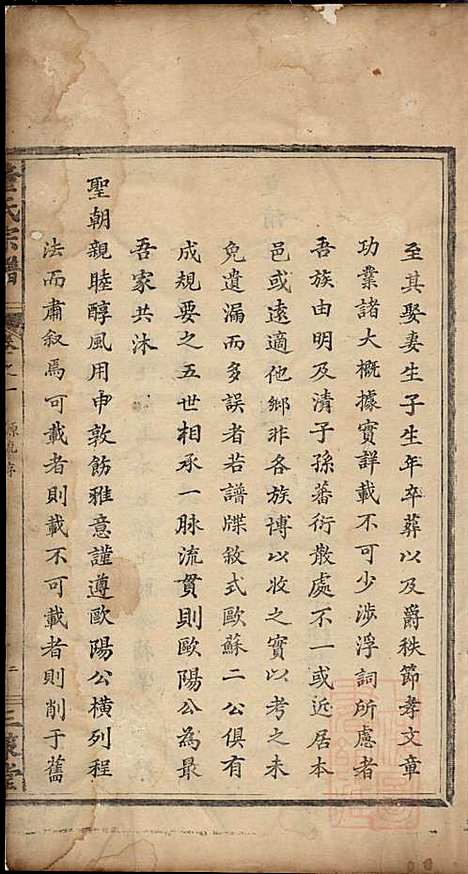 至其娶妻生子生年卒葬以及爵秩節孝文章
功業諸大概據實詳載不可少涉浮詞所慮者
吾族由明及清子孫蕃衍散處不一或近居本
邑或遠適他鄉非各族博以收之實以考之未
免遺漏而多誤者若譜牒敘式歐蘇二公俱有
成規要之五世相承一脉流貫則歐陽公為最
吾家共沐
聖朝親睦醇風用申敦飭雅意謹遵歐陽公橫列程
法而肅叙焉可載者則載不可載者則削于舊
氏宗譜
卷之一
二
堂